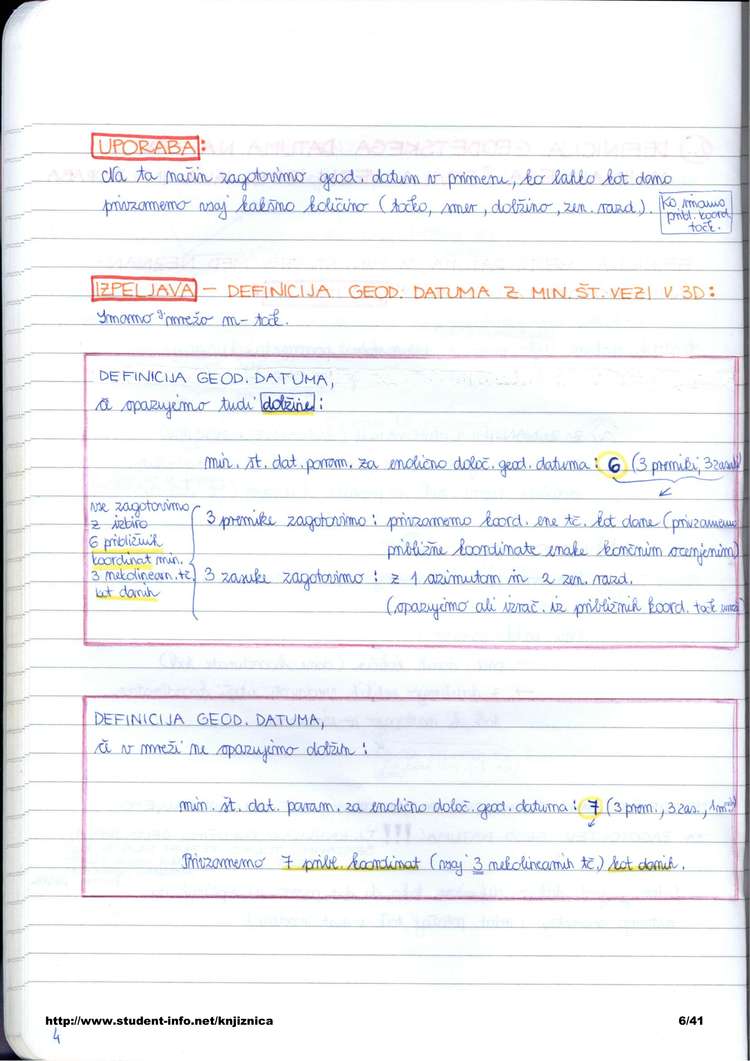 UPORABA:
Na ta način zagotovimo geod. datum v primeru, ko lahko kot dano
privzamemo vsaj kakšno količino (točko, smer, dolžino, zen. razd.).
Ko imamo
pribl. koord.
točk.
IZPELJAVA – DEFINICIJA GEOD. DATUMA Z MIN. ŠT. VEZI V 3D:
Imamo mrežo m-točk.
DEFINICIJA GEOD. DATUMA,
če opazujemo tudi dolžine:
min. št. dat. param. za enolično določ. geod. datuma: 6 (3 premiki, 3 zasuki)
vse zagotovimo
z izbiro
6 približnih
koordinat min.
3 nekolinearn. tč.
kot danih
3 premike zagotovimo: privzamemo koord. ene tč. kot dane (privzamemo
približne koordinate enake končnim ocenjenim)
3 zasuke zagotovimo: z 1 azimutom in 2 zen. razd.
(opazujemo ali izrač. iz približnih koord. točk
DEFINICIJA GEOD. DATUMA,
če v mreži ne opazujemo dolžin:
min. št. dat. param. za enolično določ. geod. datuma: 7 (3 prem., 3 zas., 1 m
Privzamemo 7 pribl. koordinat (vsaj 3 nekolinearnih tč.) kot danih.
http://www.student-info.net/knjiznica 6/41
4